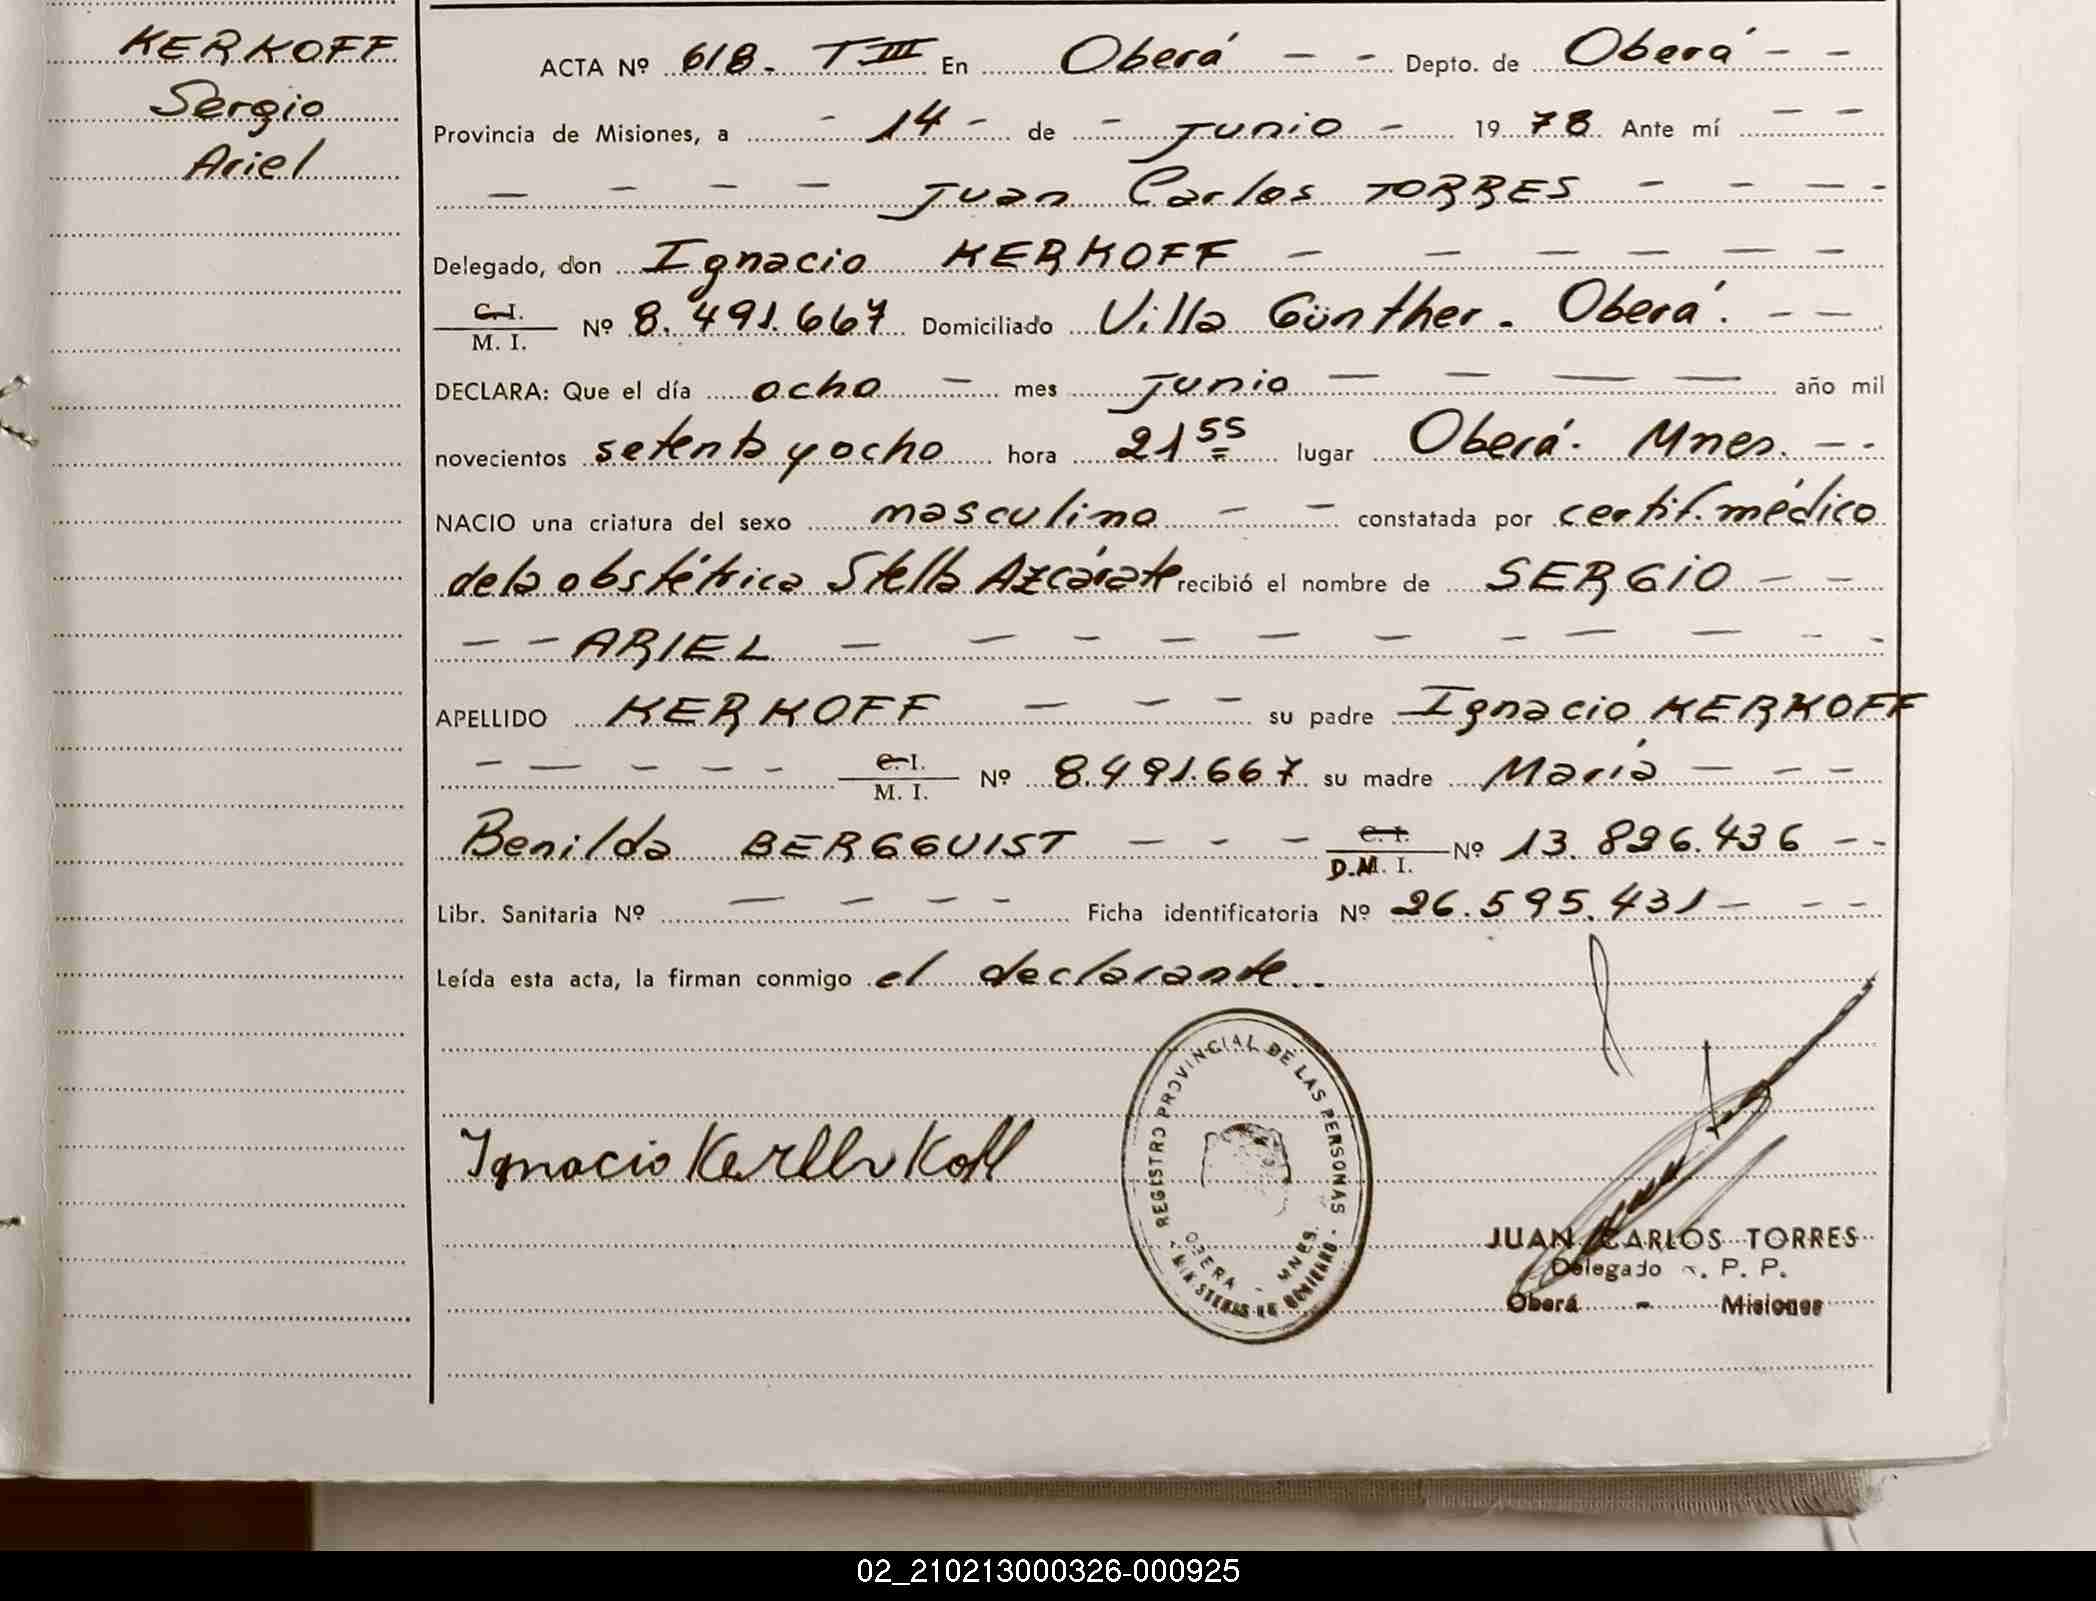 KERKOFF
Sergio
Ariel
ACTA Nº 618. T III En Oberá - - Depto. de Oberá - -
Provincia de Misiones, a - 14 - de - Junio - 1978 Ante mí - -
- - - - Juan Carlos TORRES - - - -
Delegado, don Ignacio KERKOFF - - - - - -
C.I.
M. I. Nº 8.491.667 Domiciliado Villa Günther. Oberá. - -
DECLARA: Que el día ocho - mes Junio - - - - año mil
novecientos setenta y ocho hora 21 55 lugar Oberá. Mnes. - -
NACIO una criatura del sexo masculino - - constatada por certif. médico
de la obstétrica Stella Azcárate recibió el nombre de SERGIO - -
- - ARIEL - - - - - - - - - - -
APELLIDO KERKOFF - - - su padre Ignacio KERKOFF
- - - - - C.I.
M. I. Nº 8.491.667 su madre María - - -
Benilda BERGGUIST - - - C. I.
D.M. I. Nº 13.826.436 - -
Libr. Sanitaria Nº - - - - Ficha identificatoria Nº 26.595.431 - - -
Leída esta acta, la firman conmigo el declarante. -
REGISTRO PROVINCIAL DE LAS PERSONAS
OBERA - MNES.
MINISTERIO DE GOBIERNO
Ignacio
JUAN CARLOS TORRES
Delegado R. P. P.
Oberá - Misiones
02_210213000326-000925